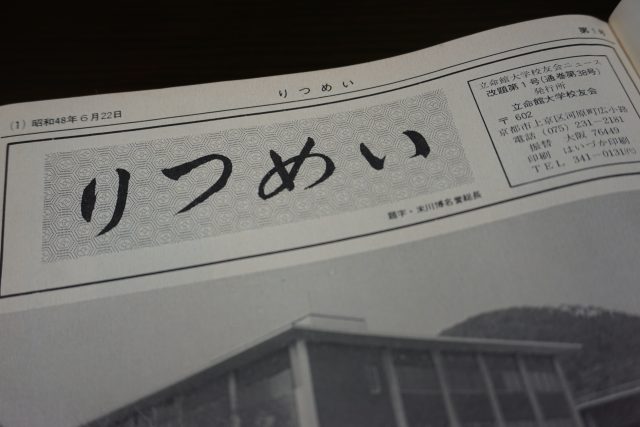 りつめい
第1号
(1) 昭和48年6月22日
りつめい
題字・末川博名誉総長
立命館大学校友会ニュース
改題第1号(通巻第38号)
発行所
立命館大学校友会
〒602
京都市上京区河原町広小路
電話 (075) 231-2181
振替 大阪 76449
印刷 はいづか印刷
TEL 341-0131(代)